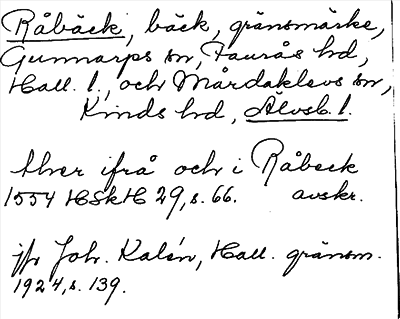 Råbäck, bäck, gränsmärke,
Gunnarps sn, Faurås hd,
Hall. l., och Mårdaklevs sn,
Kinds hd, Älvsb. l.
thver ifrå och i Råbeck
1554 HSkH 29, s. 66. avskr.
jfr Joh. Kalén, Hall. gränsm.
1924, s. 139.